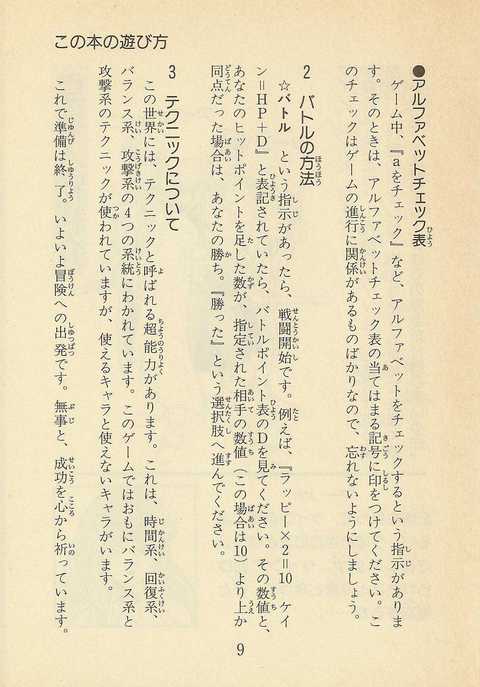 この本の遊び方
●アルファベットチェック表
ゲーム中、『aをチェック』など、アルファベットをチェックするという指示がありま
す。そのときは、アルファベットチェック表の当てはまる記号に印をつけてください。こ
のチェックはゲームの進行に関係があるものばかりなので、忘れないようにしましょう。
2 バトルの方法
☆バトル という指示があったら、戦闘開始です。例えば、『ラッピー×2=10 ケイ
ン=HP+D』と表記されていたら、バトルポイント表のDを見てください。その数値と、
あなたのヒットポイントを足した数が、指定された相手の数値（この場合は10）より上か
同点だった場合は、あなたの勝ち。『勝った』という選択肢へ進んでください。
3 テクニックについて
この世界には、テクニックと呼ばれる超能力があります。これは、時間系、回復系、
バランス系、攻撃系の4つの系統にわかれています。このゲームではおもにバランス系と
攻撃系のテクニックが使われていますが、使えるキャラと使えないキャラがいます。
これで準備は終了。いよいよ冒険への出発です。無事と、成功を心から祈っています。
9